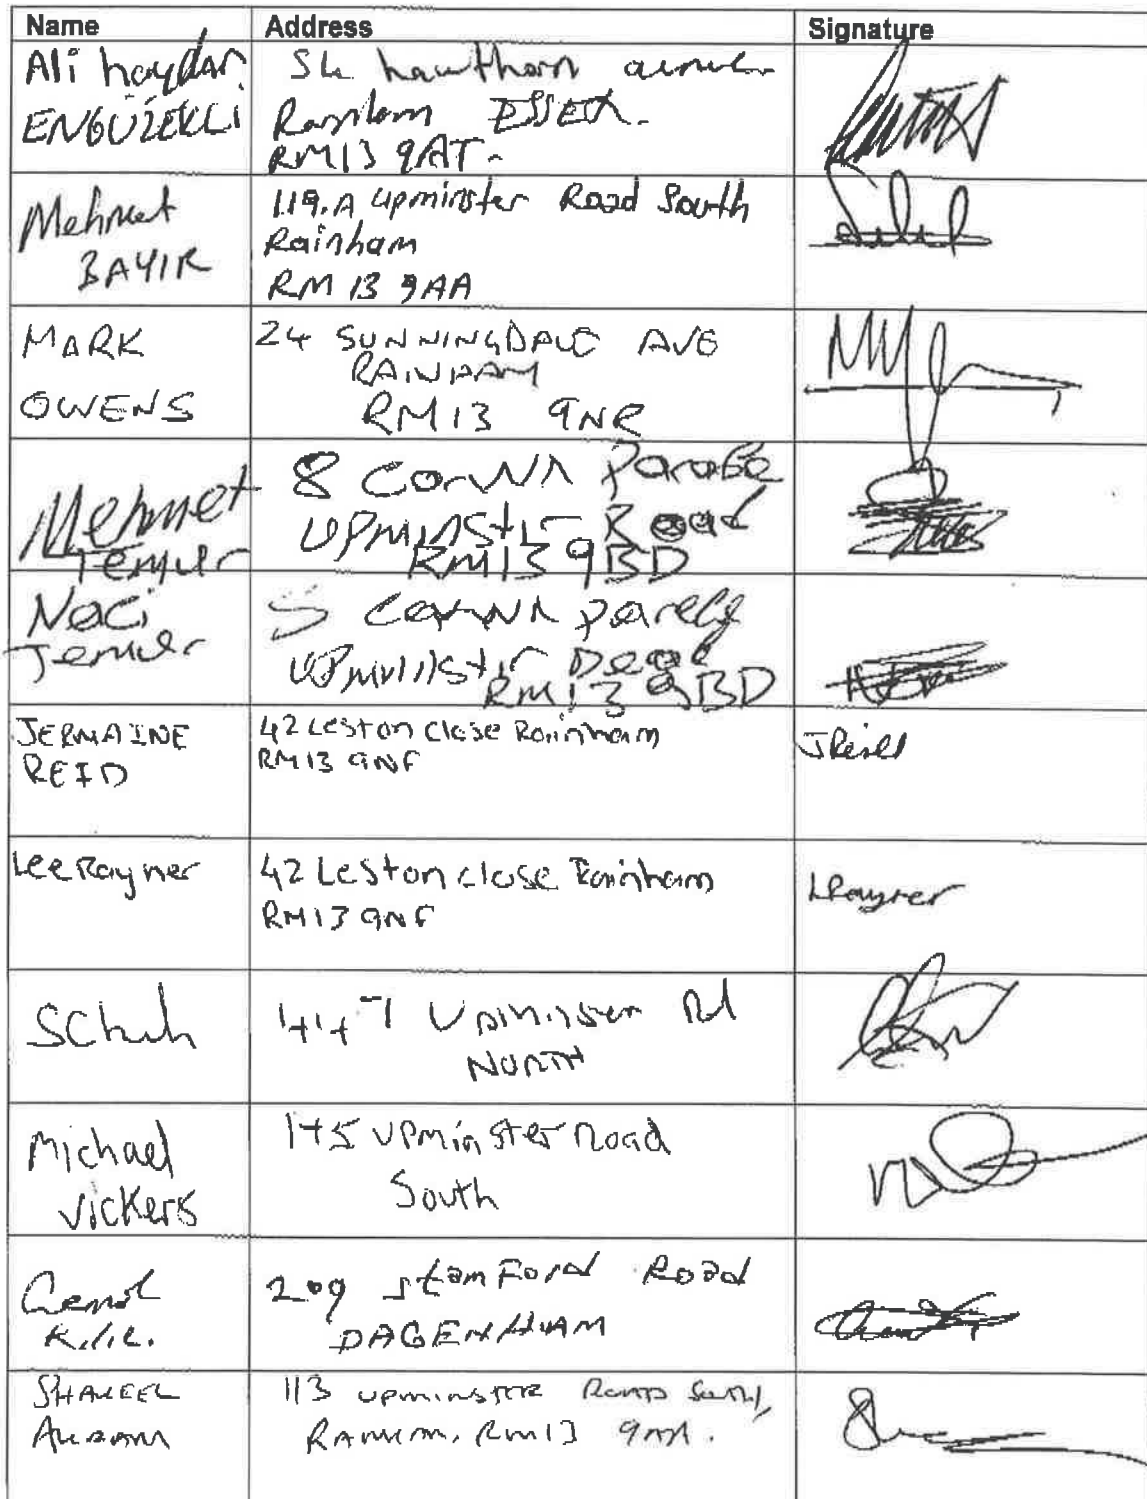 Name Address Signature
Ali haydar
ENGÜZEKLI
hawthorn
ESSEX.
RM13 9AT.
Mehmet
BAYIR
119.A upminster Road South
Rainham
RM 13 9AA
MARK
OWENS
24 SUNNINGDALE AVE
RAINHAM
RM13 9NR
Mehmet
Temur
8 CorWN Parade
UPMinstir Road
RM13 9BD
Naci
Temur
5 CorWN
UPMinstir
RM13 9BD
JERMAINE
REID
42 Leston Close Rainham
RM13 9NF
JReid
Lee Rayner
42 Leston close Rainham
RM13 9NF
LRayner
Upminster Rd
NORTH
Michael
Vickers
145 Upminster Road
South
Cemal
209 stamFord Road
DAGENHAM
SHAKEEL
113 UPMINSTER ROAD South,
RM13